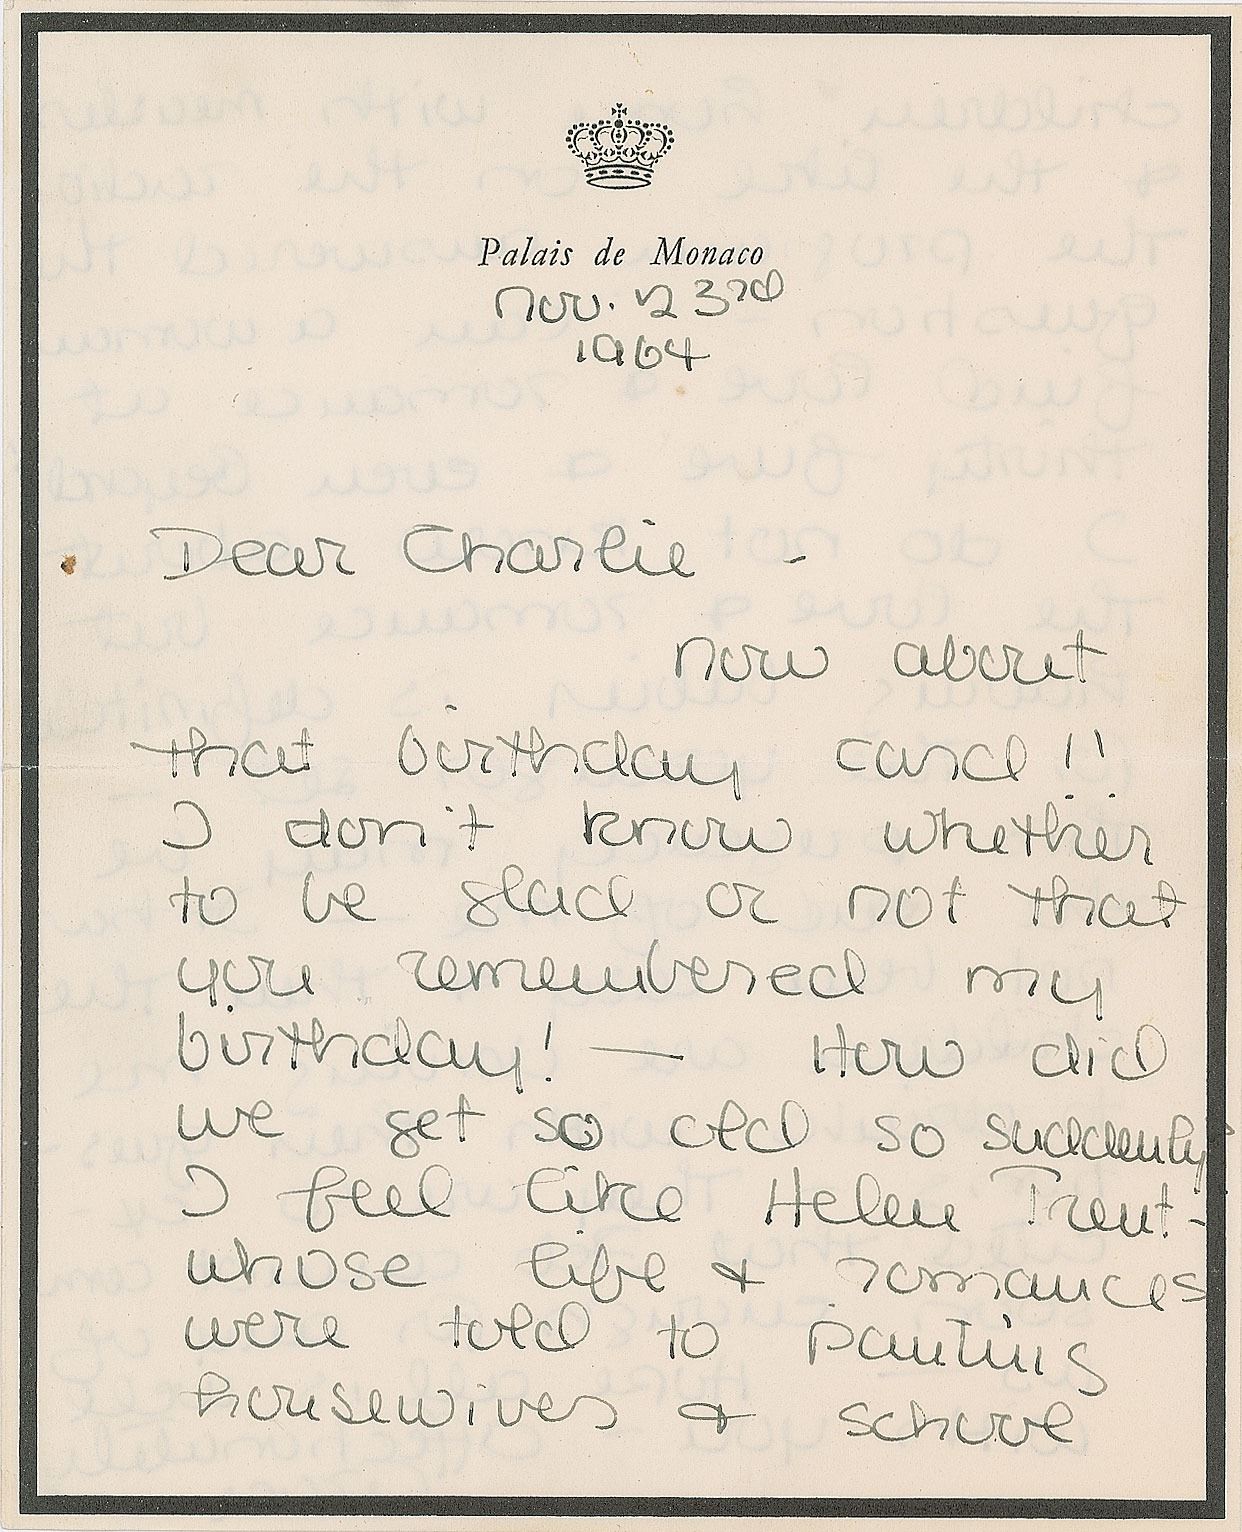 Palais de Monaco
Nov. 23rd
1964
Dear Charlie -
Now about
that birthday card!!
I don't know whether
to be glad or not that
you remembered my
birthday! — How did
we get so old so suddenly
I feel like Helen Trent -
whose life & romances
were told to panting
housewives & school